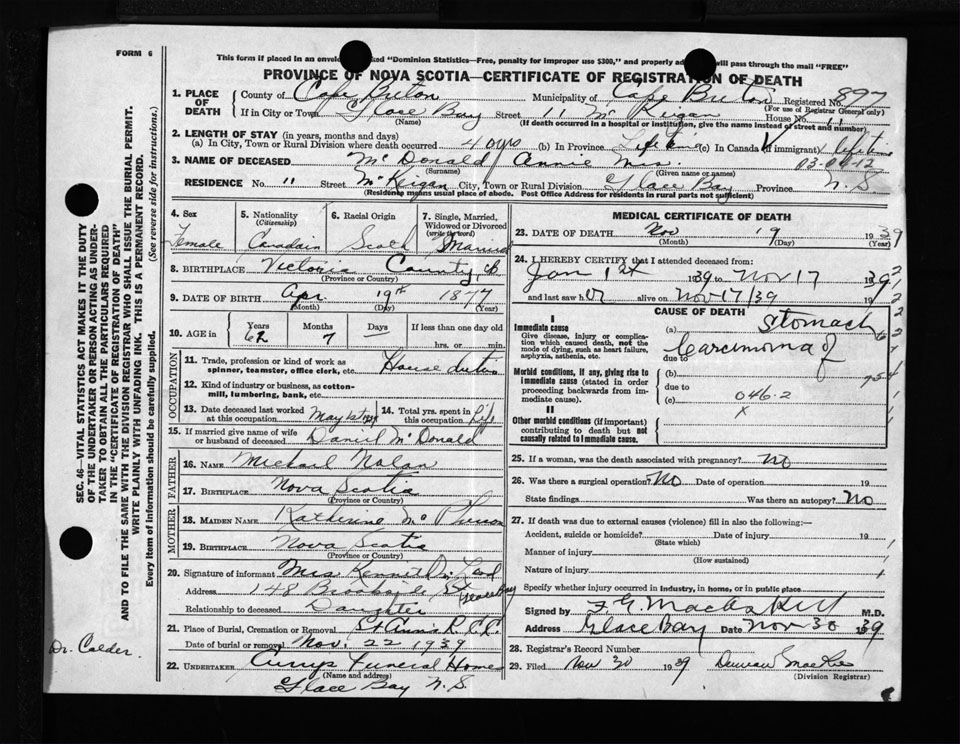 FORM 6
This form if placed in an envelope marked "Dominion Statistics—Free, penalty for improper use $300," and properly will pass through the mail "FREE"
PROVINCE OF NOVA SCOTIA—CERTIFICATE OF REGISTRATION OF DEATH
1. PLACE OF DEATH County of Cape Breton Municipality of Cape Breton Registered No. 897
(For use of Registrar General only)
If in City or Town Glace Bay Street 11 McKigan House No. 11
(Name) (If death occurred in a hospital or institution, give the name instead of street and number)
2. LENGTH OF STAY (in years, months and days)
(a) In City, Town or Rural Division where death occurred 40 yrs (b) In Province Lifetime (c) In Canada if immigrant) Lifetime
3. NAME OF DECEASED McDonald Annie Mrs.
(Surname) (Given name or names)
RESIDENCE No. 11 Street McKigan City, Town or Rural Division Glace Bay Province N.S
(Residence means usual place of abode. Post Office Address for residents in rural parts not sufficient)
4. Sex 5. Nationality 6. Racial Origin 7. Single, Married, Widowed or Divorced
(Citizenship) (write the word)
Female Canadain Scotch Married
8. BIRTHPLACE Victoria County, CB
(Province or Country)
9. DATE OF BIRTH Apr. 19th 1877
(Month) (Day) (Year)
10. AGE in Years Months Days If less than one day old
62 7 — hrs. or min.
OCCUPATION
11. Trade, profession or kind of work as spinner, teamster, office clerk, etc. House duties
12. Kind of industry or business, as cotton-mill, lumbering, bank, etc.
13. Date deceased last worked at this occupation May 1st 1939 14. Total yrs. spent in this occupation Life
15. If married give name of wife or husband of deceased Daniel McDonald
FATHER
16. NAME Michael Nolan
17. BIRTHPLACE Nova Scotia
(Province or Country)
MOTHER
18. MAIDEN NAME Katherine
19. BIRTHPLACE Nova Scotia
(Province or Country)
20. Signature of informant Mrs Kenneth
Address 148 St Glace Bay
Relationship to deceased Daughter
21. Place of Burial, Cremation or Removal St Anns R.C.C.
Date of burial or removal Nov. 22 1939
22. UNDERTAKER Currys Funeral Home
(Name and address)
Glace Bay N.S.
MEDICAL CERTIFICATE OF DEATH
23. DATE OF DEATH Nov 19 1939
(Month) (Day) (Year)
24. I HEREBY CERTIFY that I attended deceased from:
Jan 1st 1939 to Nov 17 1939
and last saw her alive on Nov 17/39
CAUSE OF DEATH
I
Immediate cause
Give disease, injury or complication which caused death, not the mode of dying, such as heart failure, asphyxia, asthenia, etc.
(a) Stomach
due to Carcinoma of
Morbid conditions, if any, giving rise to immediate cause (stated in order proceeding backwards from immediate cause).
(b)
due to
(c) 046.2
x
II
Other morbid conditions (if important) contributing to death but not causally related to immediate cause.
25. If a woman, was the death associated with pregnancy? No
26. Was there a surgical operation? No Date of operation 19
State findings Was there an autopsy? No
27. If death was due to external causes (violence) fill in also the following:—
Accident, suicide or homicide? Date of injury 19
(State which)
Manner of injury
(How sustained)
Nature of injury
Specify whether injury occurred in industry, in home, or in public place
Signed by M.D.
Address Glace Bay Date Nov 30 1939
28. Registrar's Record Number
29. Filed Nov 30 1939
(Division Registrar)
SEC. 46—VITAL STATISTICS ACT MAKES IT THE DUTY
OF THE UNDERTAKER OR PERSON ACTING AS UNDERTAKER
TO OBTAIN ALL THE PARTICULARS REQUIRED
IN THE "CERTIFICATE OF REGISTRATION OF DEATH"
AND TO FILE THE SAME WITH THE DIVISION REGISTRAR WHO SHALL ISSUE THE BURIAL PERMIT.
WRITE PLAINLY WITH UNFADING INK. THIS IS A PERMANENT RECORD.
Every item of information should be carefully supplied. (See reverse side for instructions.)
Dr. Calder